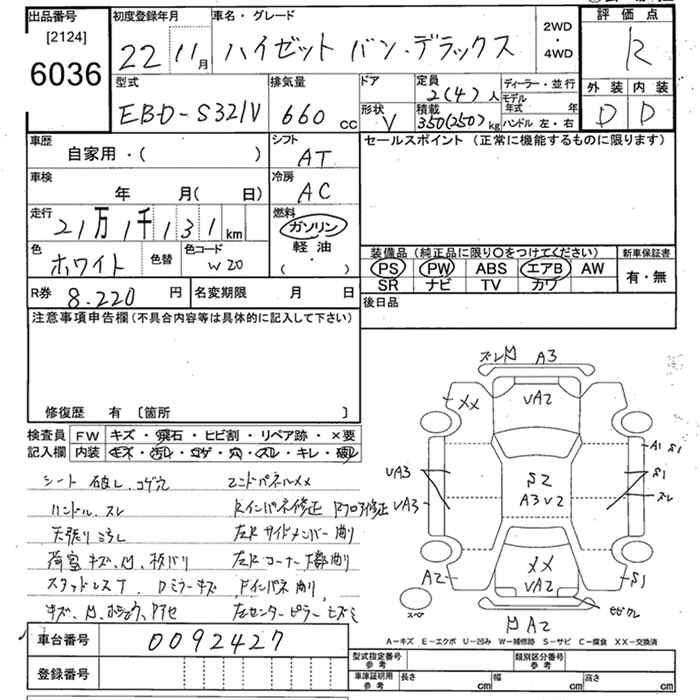 出品番号 [2124] 6036
初度登録年月 22 11月
車名・グレード ハイゼット バン・デラックス
2WD・4WD
評価点 R
型式 EBD-S321V
排気量 660 cc
ドア
形状 V
定員 2(4)人
積載 350(250)kg
ディーラー・並行
モデル年式 年
ハンドル 左・右
外装 D 内装 D
車歴 自家用・( )
シフト AT
セールスポイント (正常に機能するものに限ります)
車検 年 月( 日)
冷房 AC
走行 21万1千131km
燃料 ガソリン・軽油・( )
色 ホワイト 色替 色コード W20
装備品(純正品に限り○をつけてください) 新車保証書
PS PW ABS エアB AW 有・無
SR ナビ TV カワ
R券 8.220円 名変期限 月 日
後日品
注意事項申告欄(不具合内容等は具体的に記入して下さい)
修復歴 有 [箇所 ]
検査員記入欄 FW キズ・飛石・ヒビ割・リペア跡・×要
内装 キズ・汚レ・コゲ・穴・スレ・キレ・破レ
シート 破レ、コゲ穴
ハンドル、スレ Rインパネ修正 Rフロア修正
天張り 左R サイドメンバー 削り
荷室 キズ、凹 左R コーナー
スタッドレスT、Dミラーキズ Fインパネ 削り
左センターピラー
ズレ凹 A3
XX VA2
A1 S1
VA3 S2 S1
VA3 A3V2 スレ
XX
A2 VA2 S1
スペア
凹 A2
A-キズ E-エクボ U-凹み W-補修跡 S-サビ C-腐食 XX-交換済
車台番号 0092427
登録番号
型式指定番号 参考 類別区分番号 参考
車庫証明用 参考 長さ cm 幅 cm 高さ cm